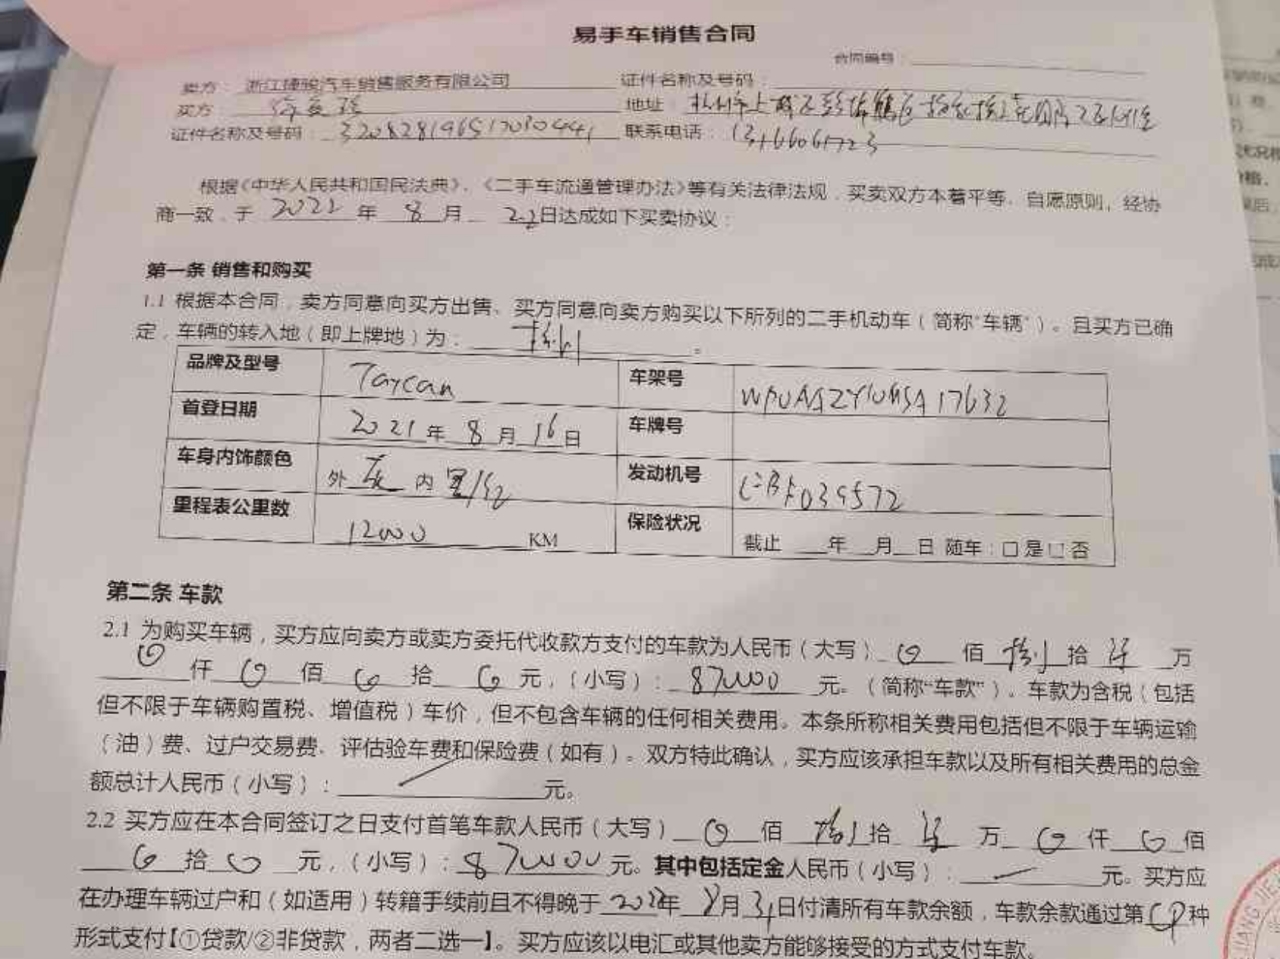 易手车销售合同
合同编号：
卖方： 浙江捷骏汽车销售服务有限公司 证件名称及号码：
买方 地址：杭州市上城区彭埠镇
证件名称及号码： 320828196512030441 联系电话：13166061723
根据《中华人民共和国民法典》、《二手车流通管理办法》等有关法律法规，买卖双方本着平等、自愿原则，经协
商一致，于 2022 年 8 月 22日达成如下买卖协议：
第一条 销售和购买
1.1 根据本合同，卖方同意向买方出售、买方同意向卖方购买以下所列的二手机动车（简称“车辆”）。且买方已确
定，车辆的转入地（即上牌地）为：杭州。
品牌及型号 Taycan 车架号
首登日期 2021年 8 月 16日 车牌号
车身内饰颜色 外 灰 内 黑/红 发动机号
里程表公里数 12000 KM 保险状况 截止 年 月 日 随车：□是□否
第二条 车款
2.1 为购买车辆，买方应向卖方或卖方委托代收款方支付的车款为人民币（大写） 0 佰 捌 拾 柒 万
0 仟 0 佰 0 拾 0 元，（小写）：870000 元。（简称“车款”）。车款为含税（包括
但不限于车辆购置税、增值税）车价，但不包含车辆的任何相关费用。本条所称相关费用包括但不限于车辆运输
（油）费、过户交易费、评估验车费和保险费（如有）。双方特此确认，买方应该承担车款以及所有相关费用的总金
额总计人民币（小写）： 元。
2.2 买方应在本合同签订之日支付首笔车款人民币（大写） 0 佰 捌 拾 柒 万 0 仟 0 佰
0 拾 0 元，（小写）：870000 元。其中包括定金人民币（小写）： 元。买方应
在办理车辆过户和（如适用）转籍手续前且不得晚于 2022年 8月 31日付清所有车款余额，车款余款通过第 种
形式支付【①贷款/②非贷款，两者二选一】。买方应该以电汇或其他卖方能够接受的方式支付车款。